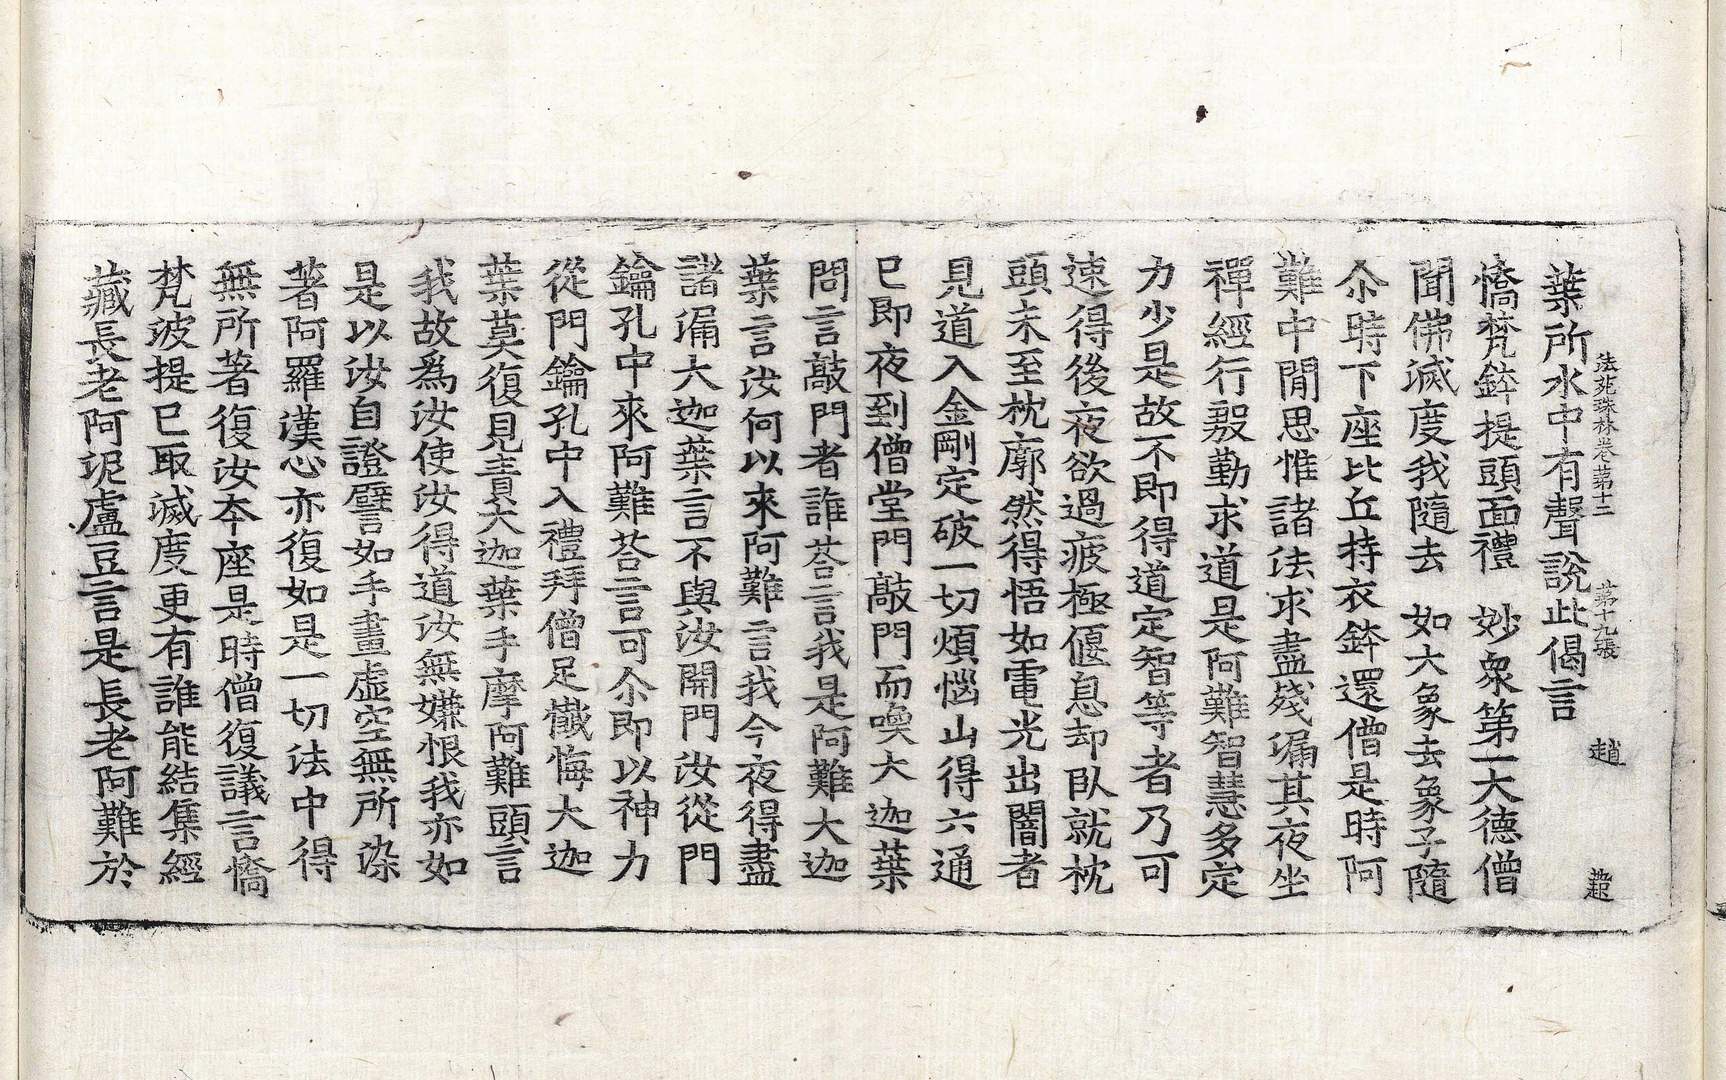 法苑珠林卷第十二 第十九張 趙 趙
葉所水中有聲說此偈言
憍梵鉢提頭面禮 妙衆第一大德僧
聞佛滅度我隨去 如大象去象子隨
尒時下座比丘持衣鉢還僧是時阿
難中閒思惟諸法求盡殘漏其夜坐
禪經行慇勤求道是阿難智慧多定
力少是故不即得道定智等者乃可
速得後夜欲過疲極偃息却卧就枕
頭未至枕廓然得悟如電光出闇者
見道入金剛定破一切煩惱山得六通
已即夜到僧堂門敲門而喚大迦葉
問言敲門者誰荅言我是阿難大迦
葉言汝何以來阿難言我今夜得盡
諸漏大迦葉言不與汝開門汝從門
鑰孔中來阿難荅言可尒即以神力
從門鑰孔中入禮拜僧足懺悔大迦
葉莫復見責大迦葉手摩阿難頭言
我故爲汝使汝得道汝無嫌恨我亦如
是以汝自證譬如手畫虛空無所染
著阿羅漢心亦復如是一切法中得
無所著復汝夲座是時僧復議言憍
梵波提已取滅度更有誰能結集經
藏長老阿泥盧豆言是長老阿難於